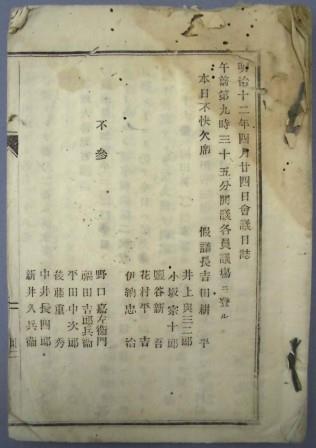 明治十二年四月廿四日會議日誌
午前第九時三十五分開議各員議場ニ登ル
本日不快欠席
假議長吉田耕平
井上與三二郎
小坂宗十郎
鹽谷新吾
花村平吉
伊納忠治
不参
野口嘉左衞門
福田吉郎兵衞
平田中次郎
後藤重秀
中井長四郎
新井久兵衞